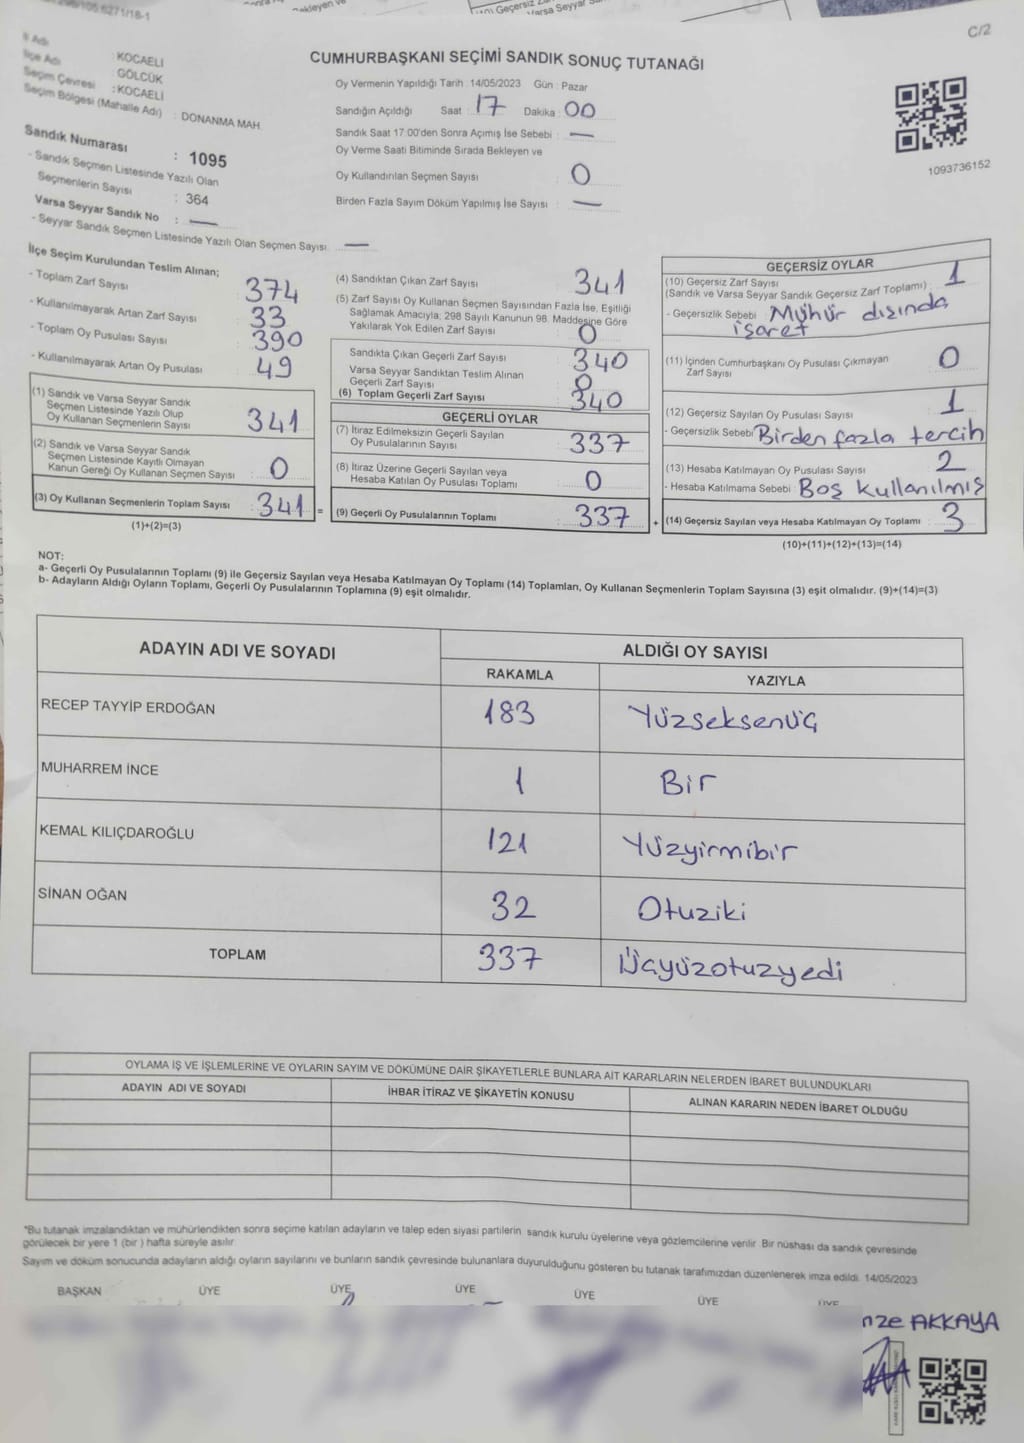 C/2
CUMHURBAŞKANI SEÇİMİ SANDIK SONUÇ TUTANAĞI
İl Adı : KOCAELİ
İlçe Adı : GÖLCÜK
Seçim Çevresi : KOCAELİ
Seçim Bölgesi (Mahalle Adı) : DONANMA MAH.
Sandık Numarası : 1095
- Sandık Seçmen Listesinde Yazılı Olan
Seçmenlerin Sayısı : 364
Varsa Seyyar Sandık No : —
- Seyyar Sandık Seçmen Listesinde Yazılı Olan Seçmen Sayısı : —
Oy Vermenin Yapıldığı Tarih : 14/05/2023 Gün : Pazar
Sandığın Açıldığı Saat : 17 Dakika : 00
Sandık Saat 17:00'den Sonra Açımış İse Sebebi : —
Oy Verme Saati Bitiminde Sırada Bekleyen ve
Oy Kullandırılan Seçmen Sayısı : 0
Birden Fazla Sayım Döküm Yapılmış İse Sayısı : —
1093736152
İlçe Seçim Kurulundan Teslim Alınan;
- Toplam Zarf Sayısı : 374
- Kullanılmayarak Artan Zarf Sayısı : 33
- Toplam Oy Pusulası Sayısı : 390
- Kullanılmayarak Artan Oy Pusulası : 49
(1) Sandık ve Varsa Seyyar Sandık
Seçmen Listesinde Yazılı Olup
Oy Kullanan Seçmenlerin Sayısı : 341
(2) Sandık ve Varsa Seyyar Sandık
Seçmen Listesinde Kayıtlı Olmayan
Kanun Gereği Oy Kullanan Seçmen Sayısı : 0
(3) Oy Kullanan Seçmenlerin Toplam Sayısı : 341 =
(1)+(2)=(3)
(4) Sandıktan Çıkan Zarf Sayısı : 341
(5) Zarf Sayısı Oy Kullanan Seçmen Sayısından Fazla İse, Eşitliği
Sağlamak Amacıyla; 298 Sayılı Kanunun 98. Maddesine Göre
Yakılarak Yok Edilen Zarf Sayısı : 0
Sandıkta Çıkan Geçerli Zarf Sayısı : 340
Varsa Seyyar Sandıktan Teslim Alınan
Geçerli Zarf Sayısı : 0
(6) Toplam Geçerli Zarf Sayısı : 340
GEÇERLİ OYLAR
(7) İtiraz Edilmeksizin Geçerli Sayılan
Oy Pusulalarının Sayısı : 337
(8) İtiraz Üzerine Geçerli Sayılan veya
Hesaba Katılan Oy Pusulası Toplamı : 0
(9) Geçerli Oy Pusulalarının Toplamı : 337 +
GEÇERSİZ OYLAR
(10) Geçersiz Zarf Sayısı : 1
(Sandık ve Varsa Seyyar Sandık Geçersiz Zarf Toplamı)
- Geçersizlik Sebebi : Mühür dışında
işaret
(11) İçinden Cumhurbaşkanı Oy Pusulası Çıkmayan
Zarf Sayısı : 0
(12) Geçersiz Sayılan Oy Pusulası Sayısı : 1
- Geçersizlik Sebebi : Birden fazla tercih
(13) Hesaba Katılmayan Oy Pusulası Sayısı : 2
- Hesaba Katılmama Sebebi : Boş kullanılmış
(14) Geçersiz Sayılan veya Hesaba Katılmayan Oy Toplamı : 3
(10)+(11)+(12)+(13)=(14)
NOT:
a- Geçerli Oy Pusulalarının Toplamı (9) ile Geçersiz Sayılan veya Hesaba Katılmayan Oy Toplamı (14) Toplamları, Oy Kullanan Seçmenlerin Toplam Sayısına (3) eşit olmalıdır. (9)+(14)=(3)
b- Adayların Aldığı Oyların Toplamı, Geçerli Oy Pusulalarının Toplamına (9) eşit olmalıdır.
ADAYIN ADI VE SOYADI ALDIĞI OY SAYISI
RAKAMLA YAZIYLA
RECEP TAYYİP ERDOĞAN 183 Yüzseksenüç
MUHARREM İNCE 1 Bir
KEMAL KILIÇDAROĞLU 121 Yüzyirmibir
SİNAN OĞAN 32 Otuziki
TOPLAM 337 Üçyüzotuzyedi
OYLAMA İŞ VE İŞLEMLERİNE VE OYLARIN SAYIM VE DÖKÜMÜNE DAİR ŞİKAYETLERLE BUNLARA AİT KARARLARIN NELERDEN İBARET BULUNDUKLARI
ADAYIN ADI VE SOYADI İHBAR İTİRAZ VE ŞİKAYETİN KONUSU ALINAN KARARIN NEDEN İBARET OLDUĞU
*Bu tutanak imzalandıktan ve mühürlendikten sonra seçime katılan adayların ve talep eden siyasi partilerin sandık kurulu üyelerine veya gözlemcilerine verilir. Bir nüshası da sandık çevresinde
görülecek bir yere 1 (bir ) hafta süreyle asılır.
Sayım ve döküm sonucunda adayların aldığı oyların sayılarını ve bunların sandık çevresinde bulunanlara duyurulduğunu gösteren bu tutanak tarafımızdan düzenlenerek imza edildi. 14/05/2023
BAŞKAN ÜYE ÜYE ÜYE ÜYE ÜYE ÜYE
AKKAYA